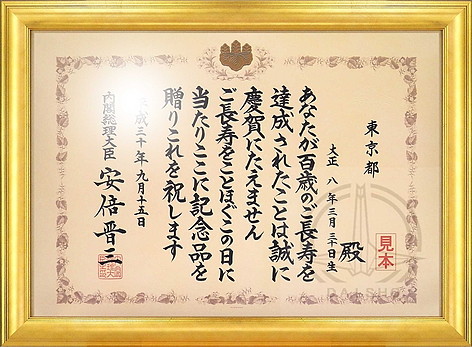 東京都
大正八年三月三十日生
殿
見本
あなたが百歳のご長寿を
達成されたことは誠に
慶賀にたえません
ご長寿をことほぐこの日に
当たりここに記念品を
贈りこれを祝します
成三十年九月十五日
内閣総理大臣 安倍晋三